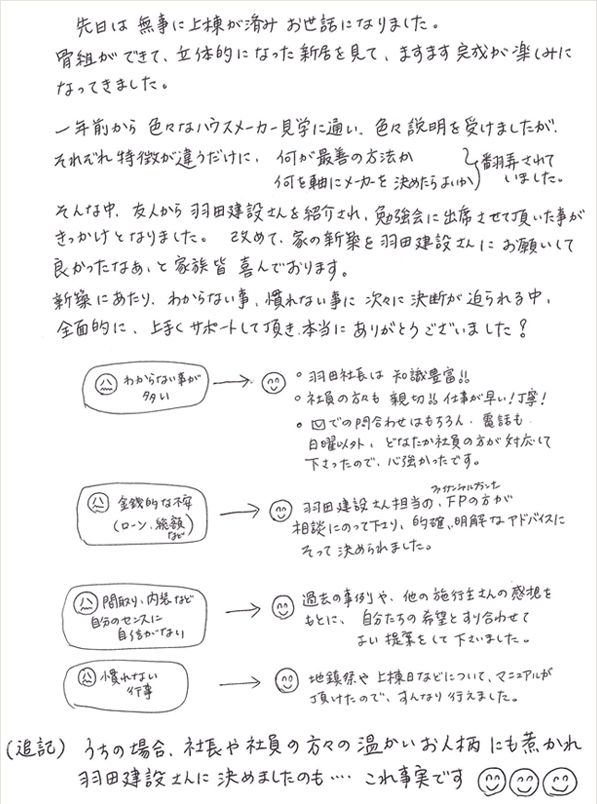 先日は 無事に上棟が済み お世話になりました。
骨組ができて、立体的になった新居を見て、ますます完成が楽しみに
なってきました。
一年前から 色々なハウスメーカー見学に通い、色々説明を受けましたが、
それぞれ特徴が違うだけに、 何が最善の方法か
何を軸にメーカーを決めたらよいか
翻弄されて
いました。
そんな中、友人から羽田建設さんを紹介され、勉強会に出席させて頂いた事が
きっかけとなりました。 改めて、家の新築を羽田建設さんにお願いして
良かったなあ、と家族皆 喜んでおります。
新築にあたり、わからない事、慣れない事に次々に決断が迫られる中、
全面的に、上手くサポートして頂き、本当にありがとうございました!
わからない事が
多い
○ 羽田社長は 知識豊富!!
○ 社員の方々も 親切!! 仕事が早い!丁寧!
○ での問合わせはもちろん、電話も
日曜以外、どなたか社員の方が対応して
下さったので、心強かったです。
金銭的な不安
(ローン、総額)
など
ファイナンシャルプランナー
羽田建設さん担当の、FPの方が
相談にのって下さり、的確、明解なアドバイスに
そって決められました。
間取り、内装など
自分のセンスに
自信がない
過去の事例や、他の施行主さんの感想を
もとに、自分たちの希望とすり合わせて
よい提案をして下さいました。
慣れない
行事
地鎮祭や上棟日などについて、マニュアルが
頂けたので、すんなり行えました。
(追記) うちの場合、社長や社員の方々の温かいお人柄にも惹かれ
羽田建設さんに決めましたのも‥‥これ事実です